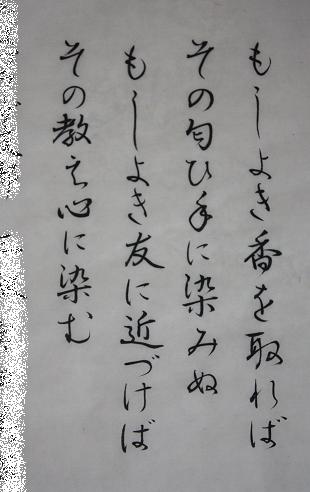 もしよき香を取れば
その匂ひ手に染みぬ
もしよき友に近づけば
その教え心に染む